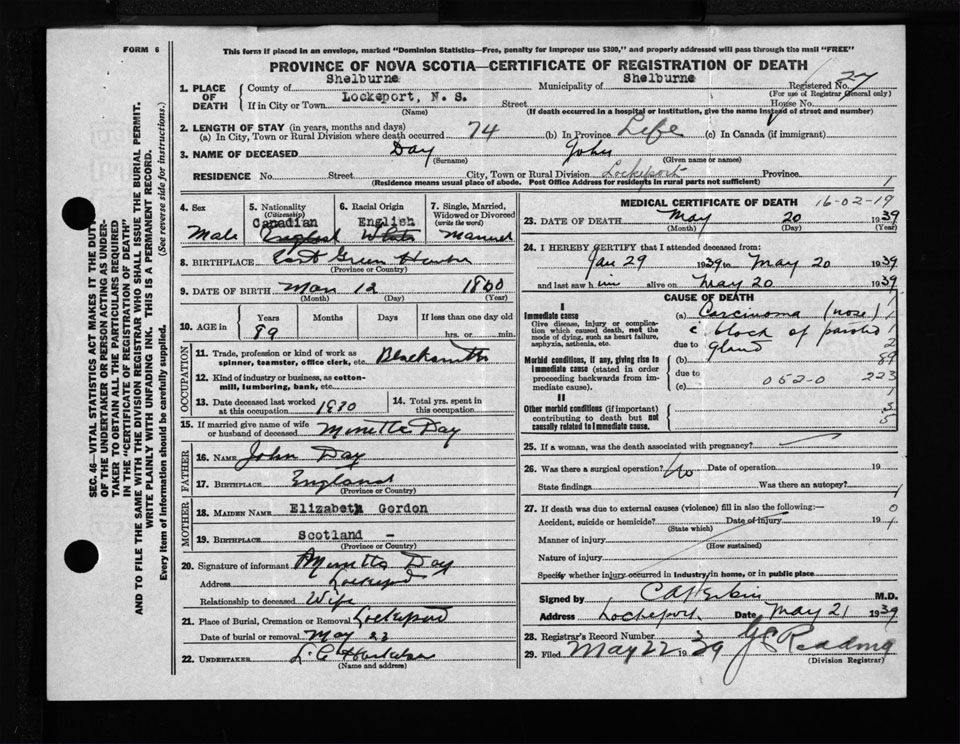 FORM 6
This form if placed in an envelope, marked "Dominion Statistics—Free, penalty for improper use $300," and properly addressed will pass through the mail "FREE"
PROVINCE OF NOVA SCOTIA—CERTIFICATE OF REGISTRATION OF DEATH
SEC. 46—VITAL STATISTICS ACT MAKES IT THE DUTY
OF THE UNDERTAKER OR PERSON ACTING AS UNDER-
TAKER TO OBTAIN ALL THE PARTICULARS REQUIRED
IN THE "CERTIFICATE OF REGISTRATION OF DEATH"
AND TO FILE THE SAME WITH THE DIVISION REGISTRAR WHO SHALL ISSUE THE BURIAL PERMIT.
WRITE PLAINLY WITH UNFADING INK. THIS IS A PERMANENT RECORD.
Every item of information should be carefully supplied. (See reverse side for instructions.)
1. PLACE OF DEATH County of Shelburne Municipality of Shelburne Registered No. 27
(For use of Registrar General only)
If in City or Town Lockeport, N. S. Street House No.
(Name) (If death occurred in a hospital or institution, give the name instead of street and number)
2. LENGTH OF STAY (in years, months and days)
(a) In City, Town or Rural Division where death occurred 74 (b) In Province Life (c) In Canada (if immigrant)
3. NAME OF DECEASED Day John
(Surname) (Given name or names)
RESIDENCE No. Street City, Town or Rural Division Lockeport Province
(Residence means usual place of abode. Post Office Address for residents in rural parts not sufficient) 1
4. Sex Male
5. Nationality (Citizenship) Canadian English
6. Racial Origin English White
7. Single, Married, Widowed or Divorced (write the word) Married
8. BIRTHPLACE East Green Harbor
(Province or Country)
9. DATE OF BIRTH Mar 12 1860
(Month) (Day) (Year)
10. AGE in Years Months Days If less than one day old
89 hrs. or min.
OCCUPATION
11. Trade, profession or kind of work as spinner, teamster, office clerk, etc. Blacksmith
12. Kind of industry or business, as cotton-mill, lumbering, bank, etc.
13. Date deceased last worked at this occupation 1930
14. Total yrs. spent in this occupation
15. If married give name of wife or husband of deceased Minetta Day
FATHER
16. Name John Day
17. Birthplace England
(Province or Country)
MOTHER
18. Maiden Name Elizabeth Gordon
19. Birthplace Scotland -
(Province or Country)
20. Signature of informant Minetta Day
Address Lockeport
Relationship to deceased Wife
21. Place of Burial, Cremation or Removal Lockeport
Date of burial or removal May 23
22. Undertaker
(Name and address)
MEDICAL CERTIFICATE OF DEATH 16-02-19
23. DATE OF DEATH May 20 1939
(Month) (Day) (Year)
24. I HEREBY CERTIFY that I attended deceased from:
Jan 29 1939 to May 20 1939
and last saw him alive on May 20 1939
CAUSE OF DEATH
I
Immediate cause (a) Carcinoma (nose)
Give disease, injury or complication which caused death, not the mode of dying, such as heart failure, asphyxia, asthenia, etc.
c block of parotid
due to gland 2
Morbid conditions, if any, giving rise to immediate cause (stated in order proceeding backwards from immediate cause).
(b) 89
due to
(c) 052-0 223
II
Other morbid conditions (if important) contributing to death but not causally related to immediate cause.
25. If a woman, was the death associated with pregnancy?
26. Was there a surgical operation? No Date of operation 19
State findings Was there an autopsy?
27. If death was due to external causes (violence) fill in also the following:— 0
Accident, suicide or homicide? Date of injury 19
(State which)
Manner of injury
(How sustained)
Nature of injury
Specify whether injury occurred in industry, in home, or in public place
Signed by M.D.
Address Lockeport Date May 21 1939
28. Registrar's Record Number 3
29. Filed May 22 1939 Reading
(Division Registrar)